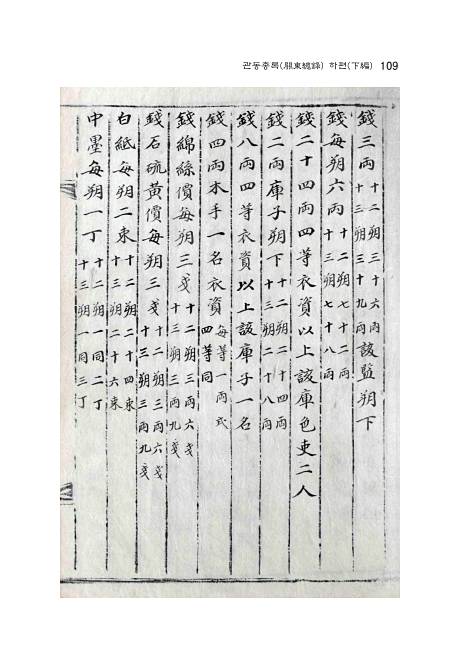 관동총록(關東總錄) 하편(下編) 109
錢三兩十二朔三十六兩十三朔三十九兩該監朔下
錢每朔六兩十二朔七十二兩十三朔七十八兩
錢二十四兩四等衣資以上該庫色吏二人
錢二兩庫子朔下十二朔二十四兩十三朔二十八兩
錢八兩四等衣資以上該庫子一名
錢四兩木手一名衣資每等一兩式四等同
錢綿絲價每朔三戔十二朔三兩六戔十三朔三兩九戔
錢石硫黃價每朔三戔十二朔三兩六戔十三朔三兩九戔
白紙每朔二束十二朔二十四束十三朔二十六束
中墨每朔一丁十二朔一同二丁十三朔一同三丁